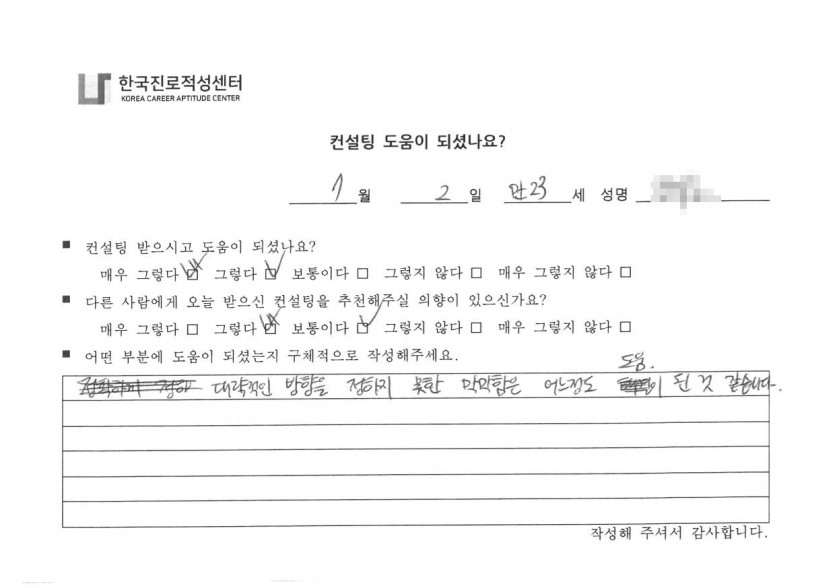 한국진로적성센터
KOREA CAREER APTITUDE CENTER
컨설팅 도움이 되셨나요?
1 월 2 일 만23 세 성명
■ 컨설팅 받으시고 도움이 되셨나요?
매우 그렇다 ☑ 그렇다 ☑ 보통이다 □ 그렇지 않다 □ 매우 그렇지 않다 □
■ 다른 사람에게 오늘 받으신 컨설팅을 추천해주실 의향이 있으신가요?
매우 그렇다 □ 그렇다 ☑ 보통이다 ☑ 그렇지 않다 □ 매우 그렇지 않다 □
■ 어떤 부분에 도움이 되셨는지 구체적으로 작성해주세요.
도움.
대략적인 방향을 정하지 못한 막막함은 어느정도 이 된 것 같습니다.
작성해 주셔서 감사합니다.